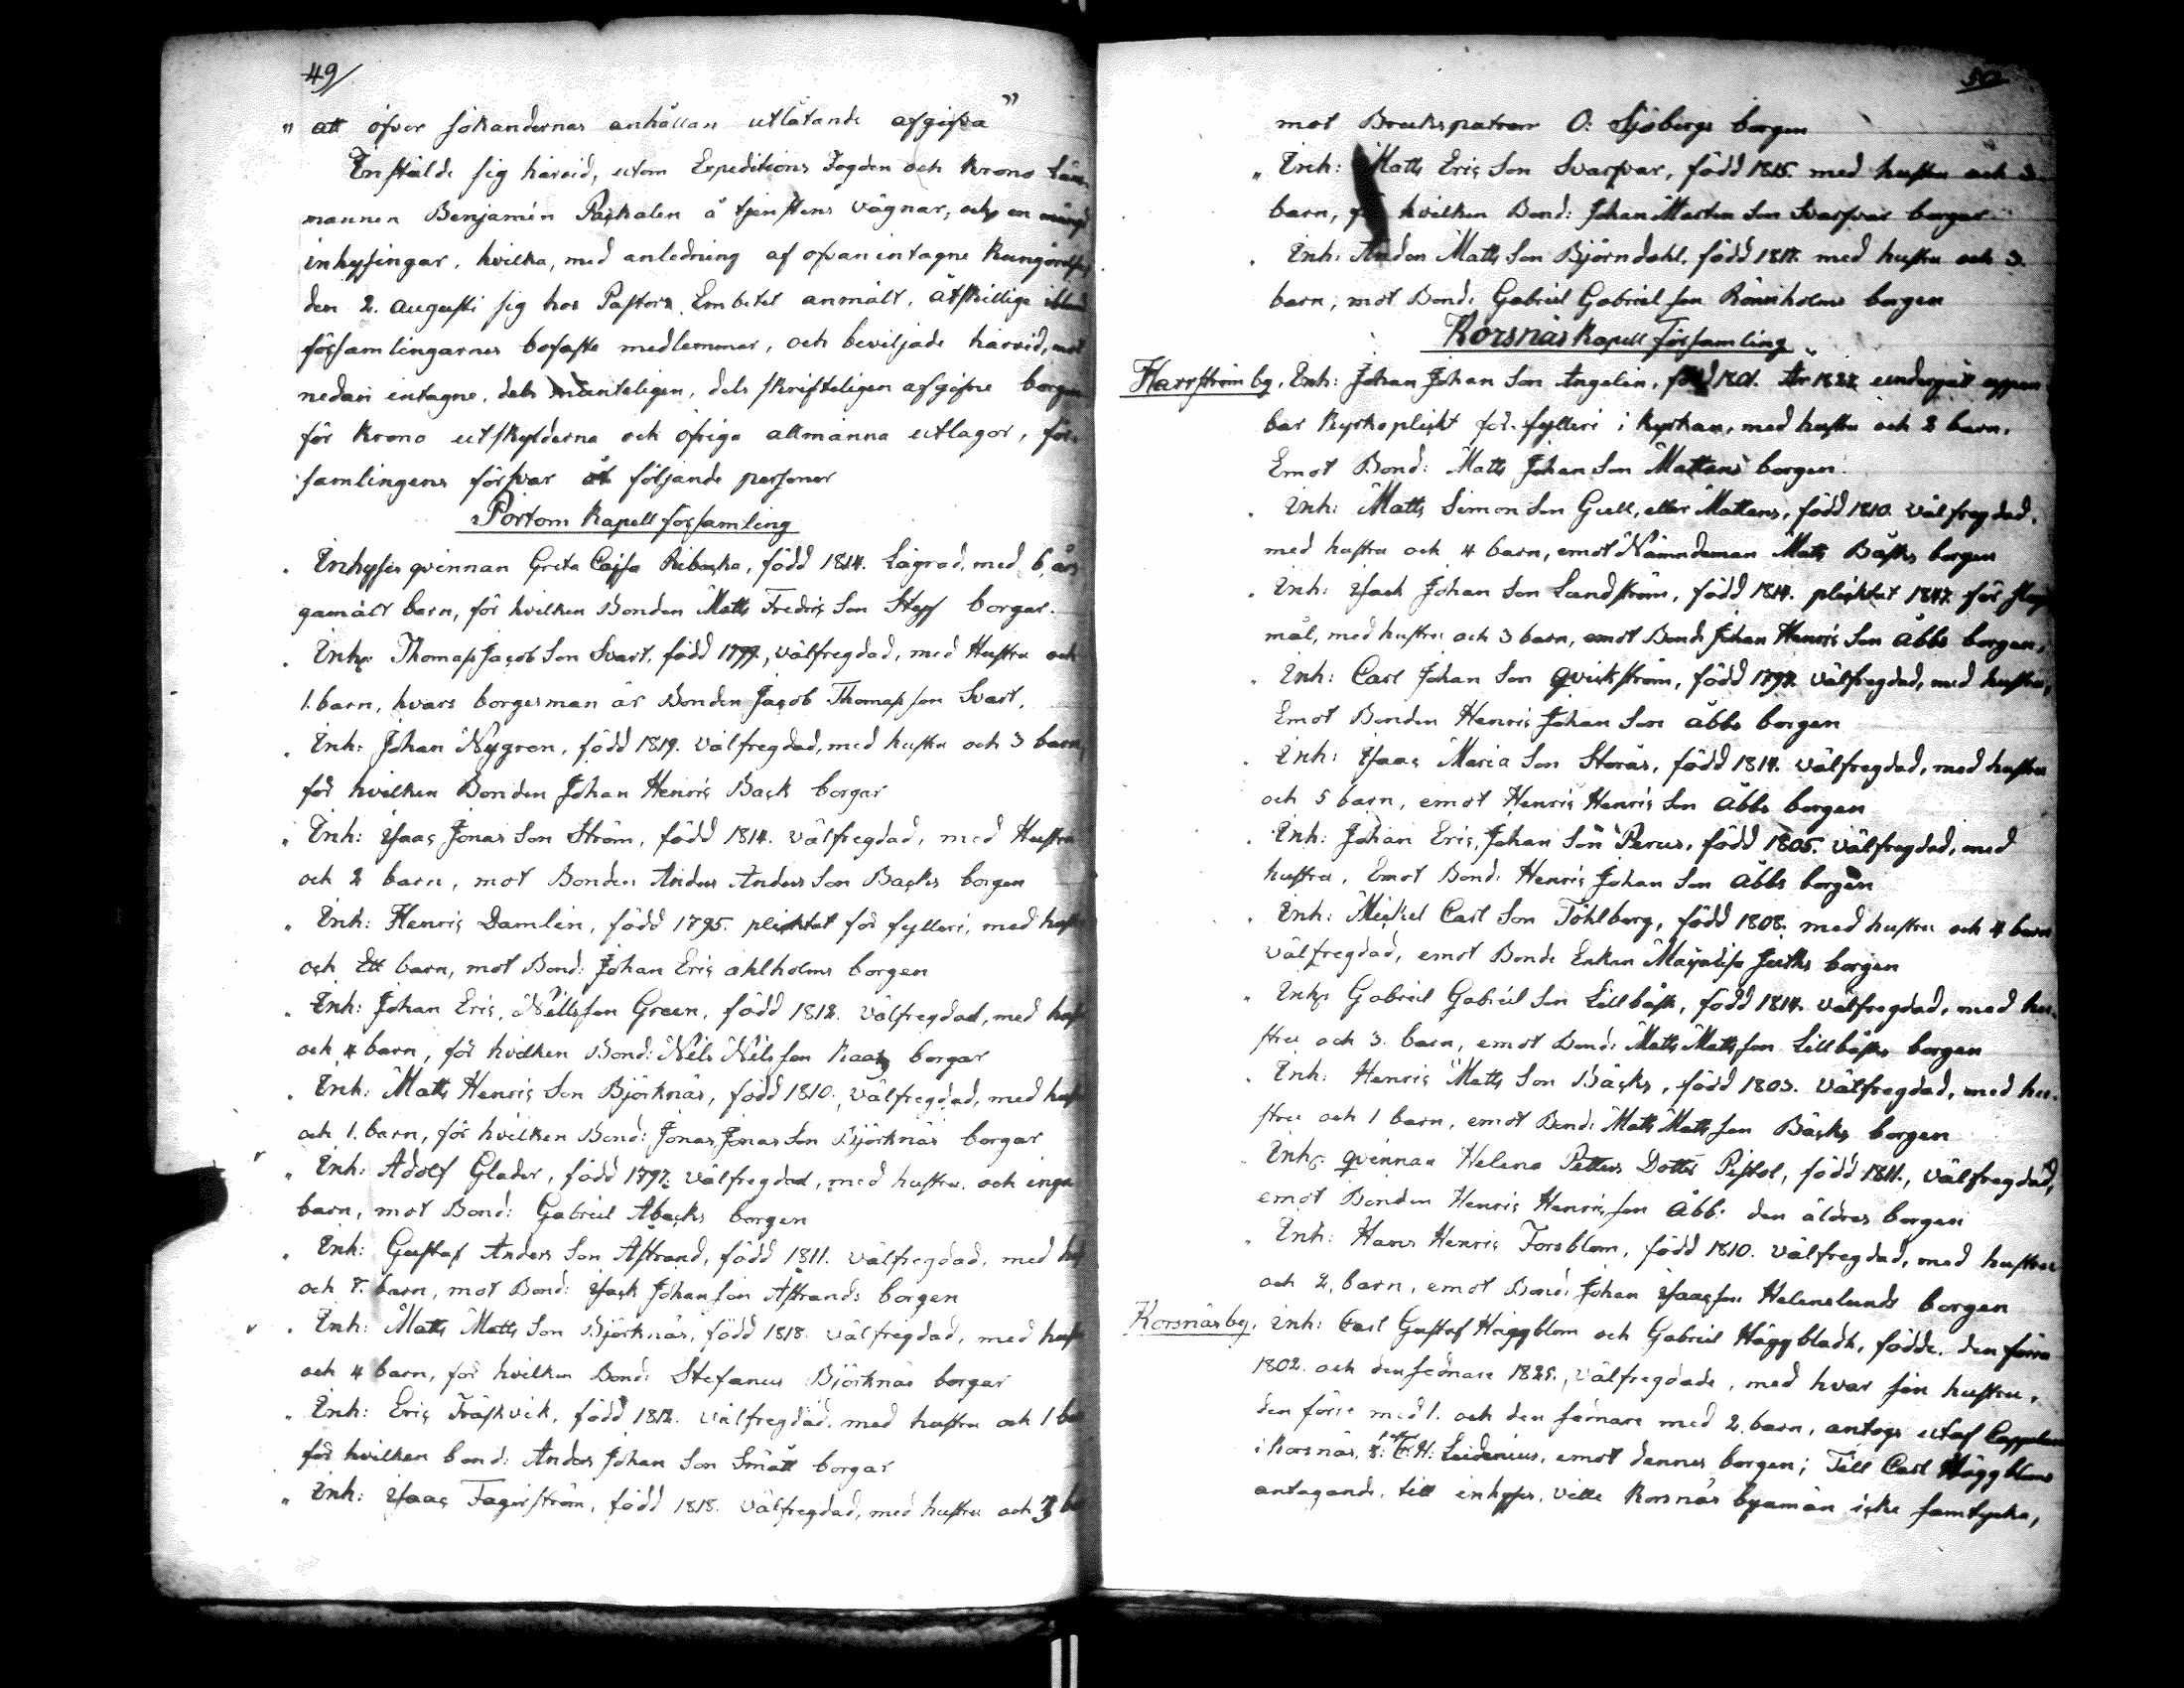 49/
" att öfver sökandernas anhållan utlåtande afgifva "
Instälde sig härvid, utom Expeditions Fogden och Krono Läns
mannen Benjamin Paskalen å tjenstens vägnar, och en mängd
inhysingar, hvilka, med anledning af ofvanintagne Kungörelse
den 2. Augusti sig hos Pastors Embetet anmält, åtskillige ibland
församlingarnes bofaste medlemmar, och beviljade härvid, mot
nedan intagne, dels munteligen, dels skrifteligen afgifne borgen
för Krono utskylderna och öfrige allmänna utlagor, för-
samlingens försvar åt följande personer
Pörtom Kapell församling
. Inhyses qvinnan Greta Cajsa Ribacka, född 1814. Lägrad, med 6. års
gamalt barn, för hvilken Bonden Matts Fredric Son Steff borgar.
. Inh: Thomas Jacob Son Svart, född 1799, välfregdad, med Hustru och
1. barn, hvars borgesman är Bonden Jacob Thomas son Svart.
. Inh: Johan Nygren, född 1819. välfregdad, med hustru och 3 barn,
för hvilken Bonden Johan Henric Back borgar
. Inh: Isaac Jonas Son Ström, född 1814. välfregdad, med Hustru
och 2 barn, mot Bonden Anders Anders Son Backs borgen
. Inh: Henric Damlin, född 1795. pliktat för fylleri, med hustru
och Ett barn, mot Bond: Johan Eric Ahlholms borgen
. Inh: Johan Eric, Nills son Green, född 1812. välfregdad, med hust
och 4 barn, för hvilken Bond: Nils Nils son Kaatz borgar
. Inh: Matts Henric Son Björknäs, född 1810., välfregdad, med hust
och 1. barn, för hvilken Bond: Jonas Jonas Son Björknäs borgar
. Inh: Adolf Glader, född 1797. välfregdad, med hustru. och inga
barn, mot Bond: Gabriel Åbacks borgen
. Inh: Gustaf Anders Son Åstrand, född 1811. välfregdad, med hus
och 7. barn, mot Bond: Isack Johan son Åstrands borgen
. Inh: Matts Matts Son Björknäs, född 1818. välfregdad, med hust
och 4 barn, för hvilken Bond: Stefanus Björknäs borgar
. Inh: Eric Träskvik, född 1812. välfregdad. med hustru och 1 bar
för hvilken bond: Anders Johan Son Smått borgar
. Inh: Isaac Fagerström, född 1818. välfregdad, med hustru och 3 ba
50
mot Brukspatron O: Sjöbergs borgen
. Inh: Matts Eric Son Svarfvar, född 1815. med hustru och
barn, för hvilken Bond: Johan Marten Son Svarfvar borgar
. Inh: Anders Matts Son Björndahl, född 1817. med hustru och 3.
barn, mot Bond: Gabriel Gabriel son Rönnholms borgen
Korsnäs Kapell församling
Harrström by. Inh: Johan Johan Son Angelin, född 1801. År 1827. undergått uppen
bar Kyrkoplickt för fylleri i Kyrkan, med hustru och 2 barn.
Emot Bond: Matts Johan Son Mattans borgen.
. Inh: Matts Simon Son Gull, eller Mattans, född 1810. välfregdad.
med hustru och 4 barn, emot Nämndeman Matts Bäcks borgen
. Inh: Isack Johan Son Landström, född 1814. plicktat 1847. för slags
mål, med hustru och 3 barn, emot Bond: Johan Henric Son Åbbs borgen.
. Inh: Carl Johan Son Qvickström, född 1797. välfregdad, med hustru,
Emot Bonden Henric Johan Son Åbbs borgen
. Inh: Isaac Maria Son Storås, född 1814. välfregdad, med hustru
och 5 barn, emot Henric Henric Son Åbbs borgen
. Inh: Johan Eric, Johan Son Perus, född 1805. välfregdad, med
hustru. Emot Bond: Henric Johan Son Åbbs borgen
. Inh: Mickel Carl Son Töhlberg, född 1808. med hustru och 4 barn
välfregdad, emot Bonde Enkan Majalisa Juths borgen
. Inh: Gabriel Gabriel Son Lillbäck, född 1814. välfregdad, med hu-
stru och 3. barn, emot Bond: Matts Matts son Lillbäcks borgen
. Inh: Henric Matts Son Bäcks, född 1803. välfregdad, med hu-
stru och 1 barn, emot Bond: Matts Matts son Bäcks borgen
. Inh: qvinnan Helena Petters Dotter Pistol, född 1811., välfregdad,
emot Bonden Henric Henric son Åbb: den äldres borgen
. Inh: Hans Henric Forsblom, född 1810. välfregdad, med hustru
och 2. barn, emot Bond: Johan Isaac son Helenelunds borgen
Korsnäs by. Inh: Carl Gustaf Häggblom och Gabriel Häggbladh, födde. den förra
1802. och den sednare 1825., välfregdade, med hvar sin hustru,
den förre med 1. och den senare med 2. barn, antogs utaf Cappelanen
i Korsnäs, H: Leidenius, emot dennes borgen; Till Carl Häggbloms
antagande, till inhyses, ville Korsnäs byamän icke samtycka,